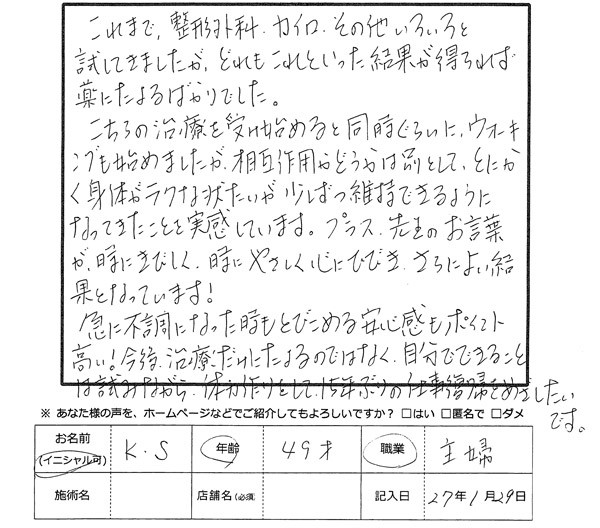 これまで、整形外科・カイロ・その他いろいろと
試してきましたが、どれもこれといった結果が得られれば
薬にたよるばかりでした。
こちらの治療を受け始めると同時ぐらいに、ウォーキ
ングも始めましたが、相互作用かどうかは別として、とにか
く身体がラクな状たいが少しずつ維持できるように
なってきたことを実感しています。プラス、先生のお言葉
が、時にきびしく、時にやさしく心にひびき、さらによい結
果となっています!
急に不調になった時もとびこめる安心感もポイント
高い!今後、治療だけにたよるのではなく、自分でできること
は試みながら、体力作りをして、15年ぶりの仕事復帰をめざしたい
です。
※ あなた様の声を、ホームページなどでご紹介してもよろしいですか? □はい □匿名で □ダメ
お名前 (イニシャル可) K.S 年齢 49才 職業 主婦
施術名 店舗名(必須) 記入日 27年1月29日